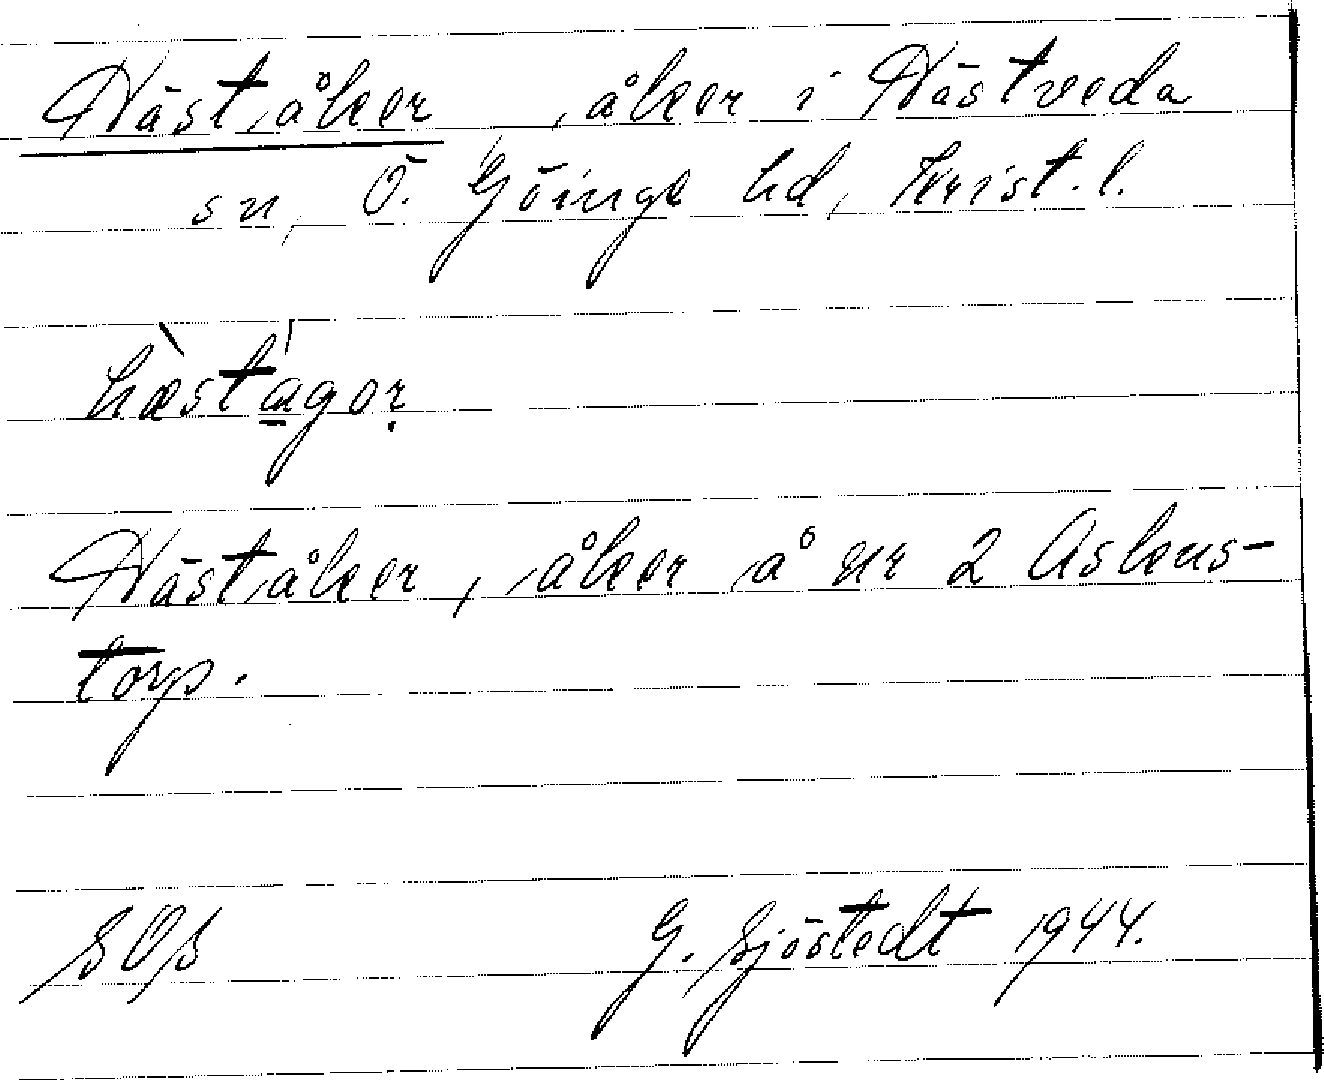 Häståker , åker i Hästveda
sn, Ö. Göinge hd, Krist. l.
hæ̀stágor
Häståker, åker å nr 2 Askens-
torp.
SOS G. Sjöstedt 1944.